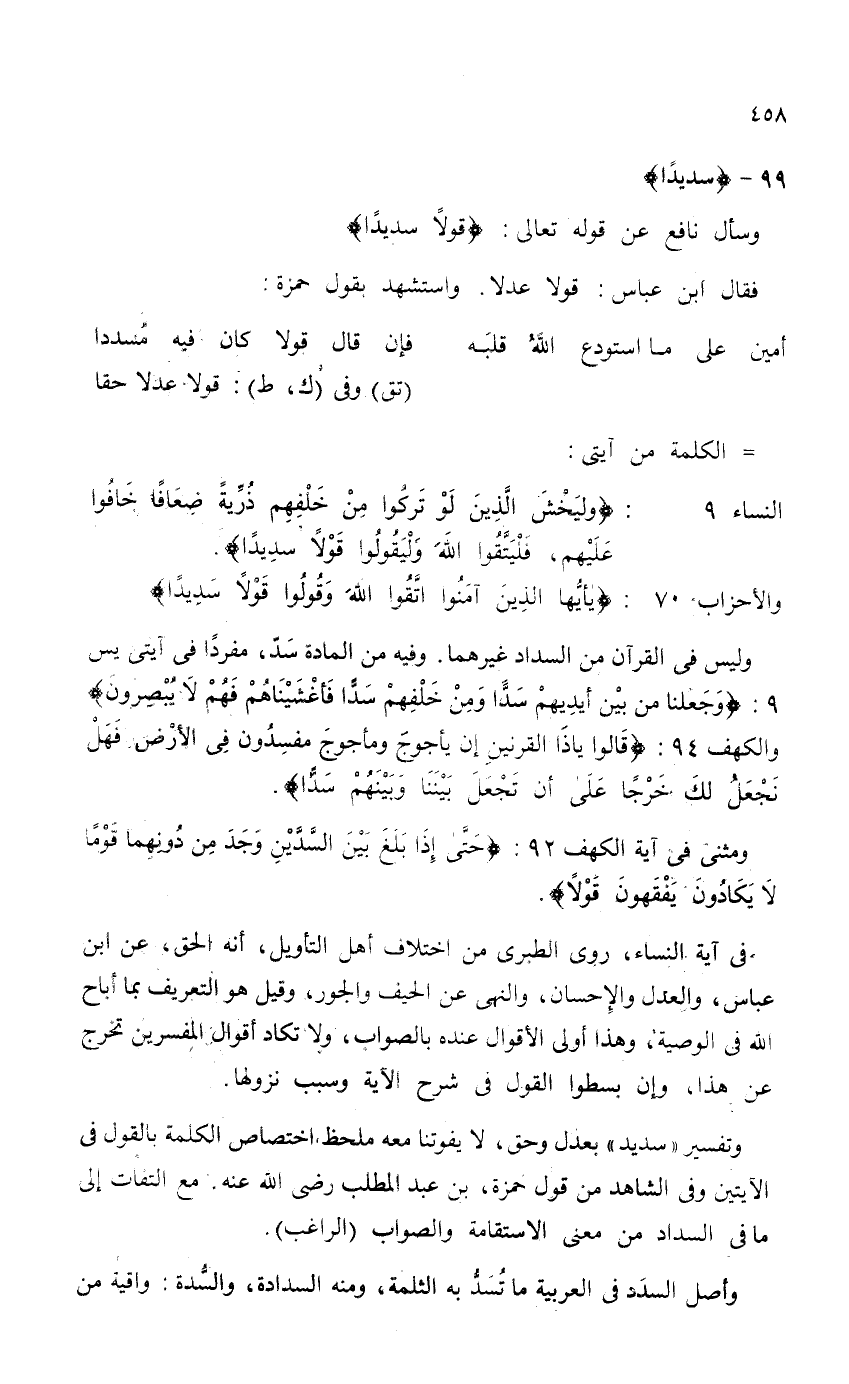 ٤٥٨
٩٩ - ﴿سديدًا﴾
وسأل نافع عن قوله تعالى : ﴿قولاً سديدًا﴾
فقال ابن عباس : قولا عدلا . واستشهد بقول حمزة :
أمين على ما استودع اللهُ قلبَه فإن قال قولا كان فيه مُسددا
(تق) وفى (ك، ط) : قولا عدلا حقا
= الكلمة من آيتى :
النساء ٩ : ﴿وليَخْشَ الَّذِينَ لَوْ تَركُوا مِنْ خَلْفِهِم ذُرِّيةً ضِعَافًا خَافُوا
عَلَيْهِم، فَلْيَتَّقُوا اللهَ وَلْيَقُولُوا قَوْلاً سدِيدًا﴾.
والأحزاب ٧٠ : ﴿يٰأيُّها الذينَ آمَنُوا اتَّقُوا اللهَ وَقُولُوا قَوْلاً سَدِيدًا﴾
وليس فى القرآن من السداد غيرهما. وفيه من المادة سَدّ، مفردًا فى آيتى يس
٩ : ﴿وَجَعلنا من بيْن أيدِيهمْ سَدًّا وَمِنْ خَلْفِهمْ سَدًّا فَأغْشَيْنَاهُمْ فَهُمْ لَا يُبْصِرونَ﴾
والكهف ٩٤ : ﴿قَالوا ياذَا القرنين إن يأجوجَ ومأجوجَ مفسِدُون فِى الأرْض فَهَلْ
نَجْعَلُ لكَ خَرْجًا عَلَىٰ أن تَجْعَلَ بَيْنَنَا وَبَيْنَهُمْ سَدًّا﴾.
ومثنى فى آية الكهف ٩٢ : ﴿حَتَّىٰ إذَا بَلَغَ بَيْنَ السَّدَّيْنِ وَجَدَ مِن دُونِهِما قَوْمًا
لَا يَكَادُونَ يَفْقَهونَ قَوْلاً﴾.
فى آية النساء، روى الطبرى من اختلاف أهل التأويل، أنه الحق، عن ابن
عباس، والعدل والإحسان، والنهى عن الحيف والجور، وقيل هو التعريف بما أباح
الله فى الوصية، وهذا أولى الأقوال عنده بالصواب، ولا تكاد أقوال المفسرين تخرج
عن هذا، وإن بسطوا القول فى شرح الآية وسبب نزولها.
وتفسير «سديد» بعدل وحق، لا يفوتنا معه ملحظ اختصاص الكلمة بالقول فى
الآيتين وفى الشاهد من قول حمزة، بن عبد المطلب رضى الله عنه. مع التفات إلى
ما فى السداد من معنى الاستقامة والصواب (الراغب).
وأصل السدَد فى العربية ما تُسَدُّ به الثلمة، ومنه السدادة، والسُّدة : واقية من